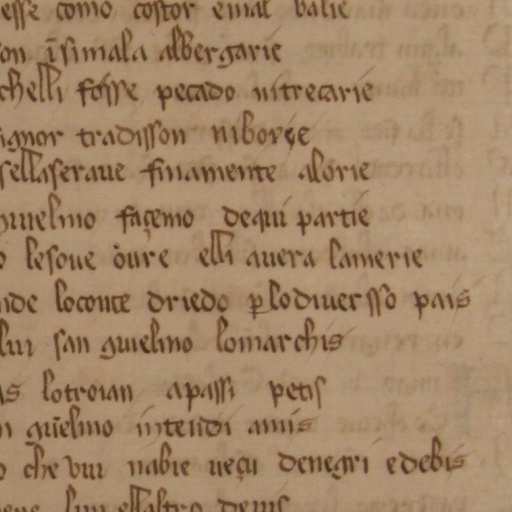 esse como costor e mal balie
on ĩ si mala albergarie
chelli fosse pecado ni trecarie
ignor tradisson ni boxçe
sella seraue finamente alorie
guielmo façemo de qui partie
le soue oure elli auera lamerie
nde lo conte driedo ꝑ lo diuersso pais
lui san guielmo lo marchis
lo troian a passi petis
guĩelmo intendi amis
o che vui nabie ueçu de negri e de bis